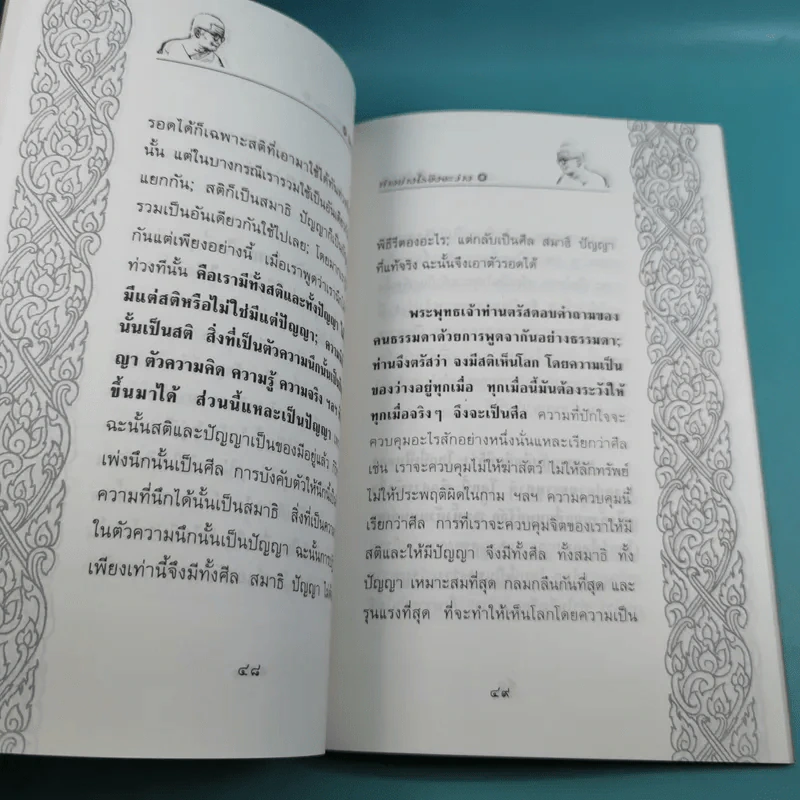 รอดได้ก็เฉพาะสติที่เอามาใช้ได้ทัน
นั้น แต่ในบางกรณีเรารวมใช้เป็นอันเดียว
แยกกัน; สติก็เป็นสมาธิ ปัญญาก็เป็น
รวมเป็นอันเดียวกันใช้ไปเลย; โดย
กันแต่เพียงอย่างนี้ เมื่อเราพูดว่าเรา
ท่วงทีนั้น คือเรามีทั้งสติและทั้งปัญญา
มีแต่สติหรือไม่ใช่มีแต่ปัญญา;
นั้นเป็นสติ สิ่งที่เป็นตัวความนึกนั้น
ญา ตัวความคิด ความรู้ ความจริง ฯลฯ
ขึ้นมาได้ ส่วนนี้แหละเป็นปัญญา
ฉะนั้นสติและปัญญาเป็นของมีอยู่แล้ว
เพ่งนึกนั้นเป็นศีล การบังคับตัวให้นึกนี้
ความที่นึกได้นั้นเป็นสมาธิ สิ่งที่เป็น
ในตัวความนึกนั้นเป็นปัญญา ฉะนั้น
เพียงเท่านี้จึงมีทั้งศีล สมาธิ ปัญญา
๔๘
พิธีรีตองอะไร; แต่กลับเป็นศีล สมาธิ ปัญญา
ที่แท้จริง ฉะนั้นจึงเอาตัวรอดได้
พระพุทธเจ้าท่านตรัสตอบคำถามของ
คนธรรมดาด้วยการพูดจากันอย่างธรรมดา;
ท่านจึงตรัสว่า จงมีสติเห็นโลก โดยความเป็น
ของว่างอยู่ทุกเมื่อ ทุกเมื่อนี้มันต้องระวังให้
ทุกเมื่อจริงๆ จึงจะเป็นศีล ความที่ปักใจจะ
ควบคุมอะไรสักอย่างหนึ่งนั่นแหละเรียกว่าศีล
เช่น เราจะควบคุมไม่ให้ฆ่าสัตว์ ไม่ให้ลักทรัพย์
ไม่ให้ประพฤติผิดในกาม ฯลฯ ความควบคุมนี้
เรียกว่าศีล การที่เราจะควบคุมจิตของเราให้มี
สติและให้มีปัญญา จึงมีทั้งศีล ทั้งสมาธิ ทั้ง
ปัญญา เหมาะสมที่สุด กลมกลืนกันที่สุด และ
รุนแรงที่สุด ที่จะทำให้เห็นโลกโดยความเป็น
๔๙